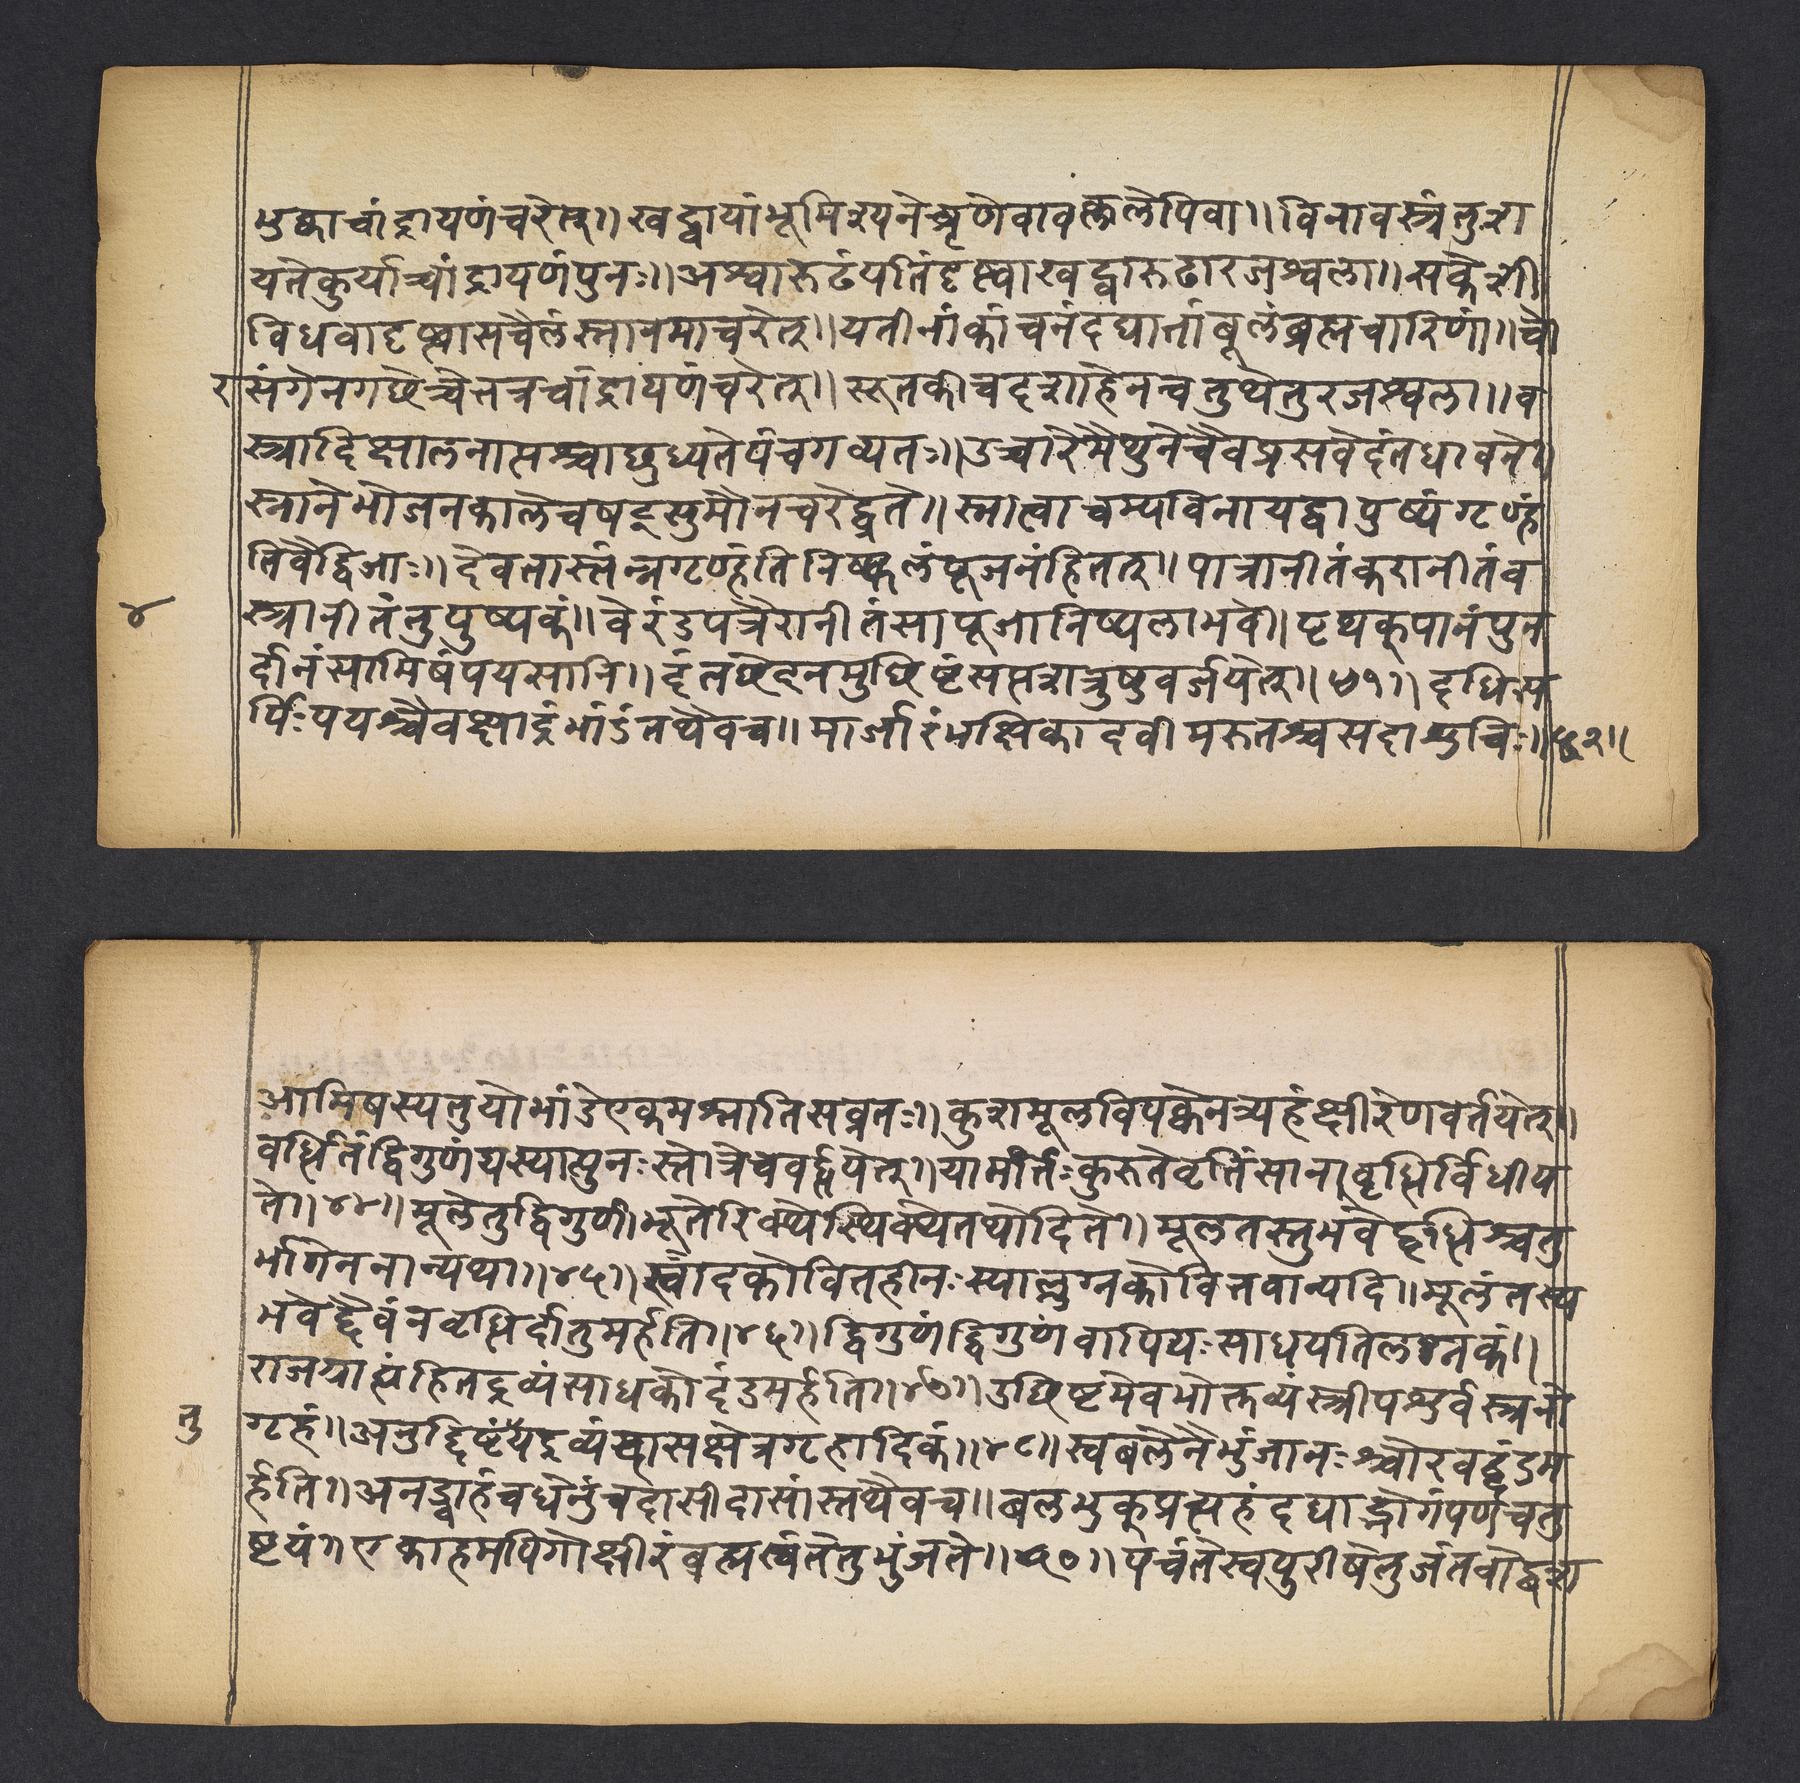 भुक्काचांद्रायणंचरेत्॥ खद्वायांभूमिशयनेतृणेवावल्कलेपिवा॥ विनावस्त्रंतुशा
यतेकुर्याच्चांद्रायणंपुनः॥ अश्वारूढंयतिंदृष्ट्वाखद्वारूढारजश्वला॥ सकेशी
विधवादृष्ट्वासचैलंस्नानमाचरेत्॥ यतीनांकांचनंदद्यात्तांबूलंब्रह्मचारिणां॥ चौ
रासंगेनगछेच्चेत्तत्रचांद्रायणंचरेत्॥ सूतकीचदशाहेनचतुर्थेतुरजस्वला॥ व
स्त्रादिक्षालनात्पश्चाछुध्यतेपंचगव्यतः॥ उच्चारेमैथुनेचैवप्रसवेदंतधावने॥
स्नानेभोजनकालेचषट्सुमौनचरेद्व्रते॥ स्नात्वाचम्यविनायद्वापुष्पंगृण्हं
तिवैद्विजाः॥ देवतास्तंन्नगृण्हंतिनिष्फलंपूजनंहितत्॥ पात्रानीतंकरानीतंव
४ स्त्रानीतंतुपुष्पकं॥ वेरंडपत्रैरानीतंसापूजानिष्पलाभवे॥ पृथक्पानंपुन
र्दानंसामिषंपयसानि॥ दंतछेदनमुछिष्टंसप्तशत्रुषुवर्जयेत्॥ ५१॥ दधिस
र्पिःपयश्चैवक्षाद्रंभांडंतथैवच॥ मार्जारंमक्षिकादवीमरुतश्चसदाशुचिः॥ ५२॥
आमिषस्यतुयोभांडेएकमश्नातिसव्रतः॥ कुशमूलविपक्वेनत्र्यहंक्षीरेणवर्तयेत्॥
वर्धितंद्विगुणंयस्यात्पुनःस्तोत्रेचवर्द्धयेत्॥ यामार्तिःकुरुतेवृत्तिंसानावृधिर्विधीय
ते॥ ४४॥ मूलेतुद्विगुणीभूतेरिक्थेस्थिक्थेतथोदिते॥ मूलतस्तुभवेद्वृधिश्चतु
र्भागेननान्यथा॥ ४५॥ खादकोवितहीनःस्याल्लग्नकोवित्तवान्यदि॥ मूलंतस्य
भवेद्देवंनवृधिर्दातुमर्हति॥ ४६॥ द्विगुणंद्विगुणंवापियःसाधयतिलग्नकं॥
राजग्रात्यंहितद्रव्यंसाधकोदंडमर्हति॥ ४७॥ उछिष्टमेवभोक्तव्यंस्त्रीपशुर्वस्त्रने
तु गृहं॥ अनुद्दिष्टंयद्रव्यंदासक्षेत्रगृहादिकं॥ ४८॥ स्वबलेनैभुंजानःश्चौरवद्दंडम
र्हति॥ अनड्वाहंचधेनुंचदासीदासांस्तथैवच॥ बलभुक्प्रत्यहंदद्याद्भोगंपणंचतु
ष्टयं॥ एकाहमपिगोक्षीरंब्रह्मर्थेतेतुभुंजते॥ ५०॥ पर्चतेस्वपुरीषेतुर्जंतवोद्वश